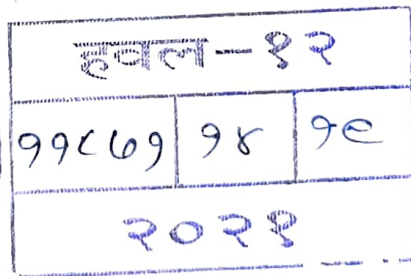 हवल-१२
११८७१ १४ १९
२०२१